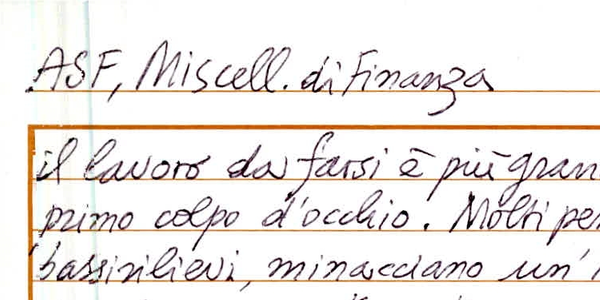 ASF, Miscell. di Finanza
il lavoro da farsi è più gran
primo colpo d'occhio. Molti pe
bassirilievi, minacciano un'